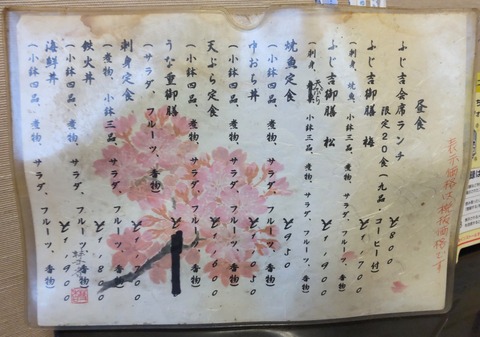 昼食
ふじ吉会席ランチ ¥1,800
限定20食(九品、コーヒー付)
ふじ吉御膳 梅 ¥1,700
(刺身、焼魚、小鉢三品、煮物、サラダ、フルーツ、香物)
ふじ吉御膳 松
(刺身、天ぷら、小鉢三品、煮物、サラダ、フルーツ、香物)
焼魚定食 ¥950
(小鉢四品、煮物、サラダ、フルーツ、香物)
中おち丼 ¥1,050
(小鉢四品、煮物、サラダ、フルーツ、香物)
天ぷら定食 ¥1,600
(小鉢四品、煮物、サラダ、フルーツ、香物)
うな重御膳
(サラダ、フルーツ、香物)
刺身定食 ¥1,800
(煮物、小鉢三品、サラダ、フルーツ、香物)
鉄火丼 ¥1,800
(小鉢四品、煮物、サラダ、フルーツ、香物)
海鮮丼 ¥1,900
(小鉢四品、煮物、サラダ、フルーツ、香物)
表示価格は税抜価格です